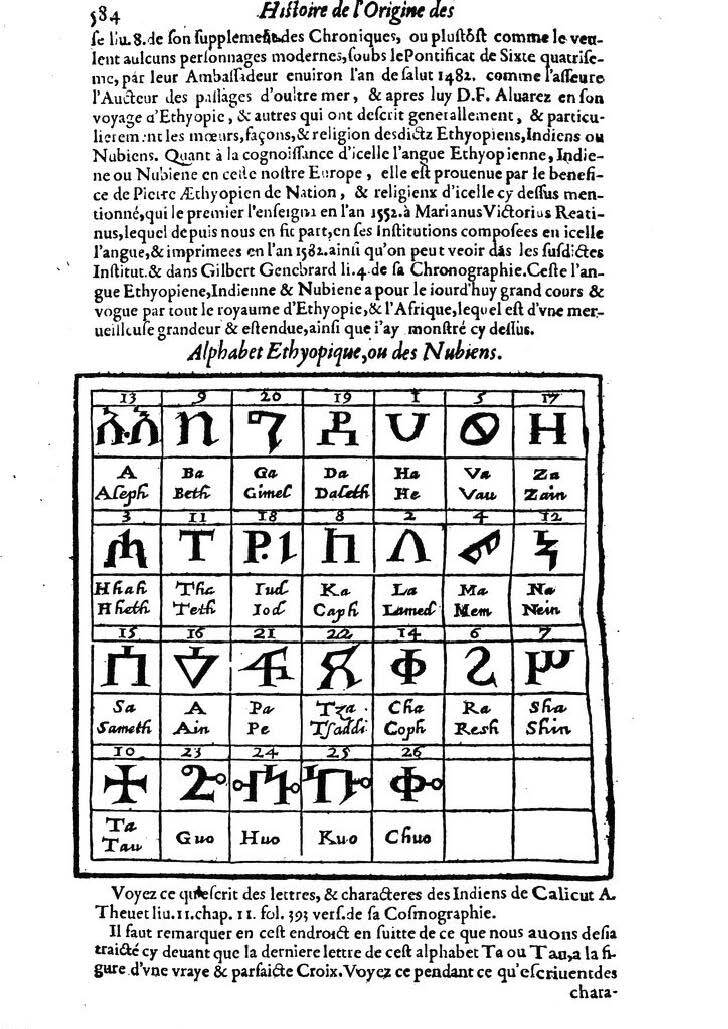 584 Histoire de l'Origine des
se liu.8.de son supplement des Chroniques, ou plustost comme le veu-
lent aulcuns personnages modernes, soubs le Pontificat de Sixte quatriſe-
me, par leur Ambassadeur enuiron l'an de salut 1482. comme l'asseure
l'Aucteur des passages d'oultre mer, & apres luy D.F. Aluarez en son
voyage d'Ethyopie, & autres qui ont descrit generallement, & particu-
lierement les mœurs, façons, & religion desdictz Ethyopiens, Indiens ou
Nubiens. Quant à la cognoissance d'icelle l'angue Ethyopienne, Indie-
ne ou Nubiene en ceste nostre Europe, elle est prouenue par le benefi-
ce de Pierre Æthyopien de Nation, & religieux d'icelle cy dessus men-
tionné, qui le premier l'enseigna en l'an 1552. à Marianus Victorius Reati-
nus, lequel depuis nous en fit part, en ses Institutions composees en icelle
l'angue, & imprimees en l'an 1582. ainsi qu'on peut veoir dās les susdictes
Institut. & dans Gilbert Genebrard li.4. de sa Chronographie. Ceste l'an-
gue Ethyopiene, Indienne & Nubiene a pour le iourd'huy grand cours &
vogue par tout le royaume d'Ethyopie, & l'Afrique, lequel est d'vne mer-
ueilleuse grandeur & estendue, ainsi que i'ay monstré cy dessus.
Alphabet Ethyopique, ou des Nubiens.
13 9 20 19 1 5 17
A Ba Ga Da Ha Va Za
Aleph Beth Gimel Daleth He Vau Zain
3 11 18 8 2 4 12
Hhah Tha Iud Ka La Ma Na
Hheth Teth Iod Caph Lamed Mem Nein
15 16 21 22 14 6 7
Sa A Pa Tza Cha Ra Sha
Sameth Ain Pe Tsaddi Coph Resh Shin
10 23 24 25 26
Ta Guo Huo Kuo Chuo
Tau
Voyez ce qu'escrit des lettres, & characteres des Indiens de Calicut A.
Theuet liu.11.chap. 11. fol. 393 vers. de sa Cosmographie.
Il faut remarquer en cest endroict en suitte de ce que nous auons desia
traicté cy deuant que la derniere lettre de cest alphabet Ta ou Tau, a la fi-
gure d'vne vraye & parfaicte Croix. Voyez ce pendant ce qu'escriuent des
chara-